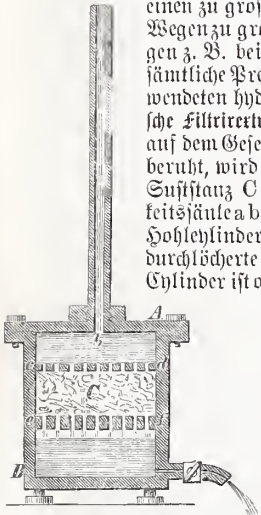 einen zu groß
Wegen zu gro
gen z. B. bei
sämtliche Pre
wendeten hyd
sche Filtrirextr
auf dem Gese
beruht, wird
Suststanz C
keitssäule a b
Hohlcylinder
durchlöcherte
Cylinder ist o
A
b
d
C
B